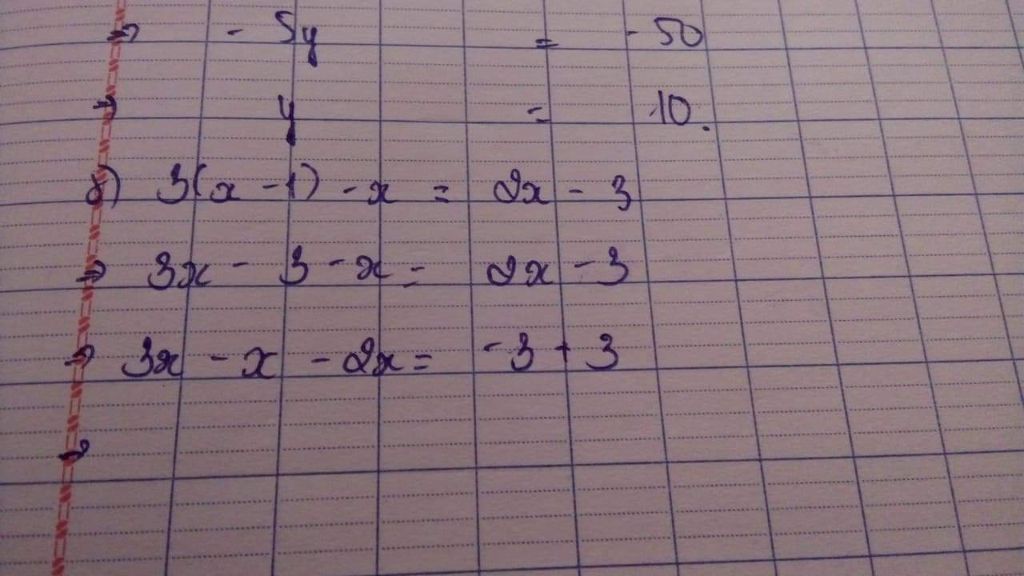 ⇒ - 5y = - 50
⇒ y = 10.
8) 3(x - 1) - x = 2x - 3
⇒ 3x - 3 - x = 2x - 3
⇒ 3x - x - 2x = - 3 + 3
⇒